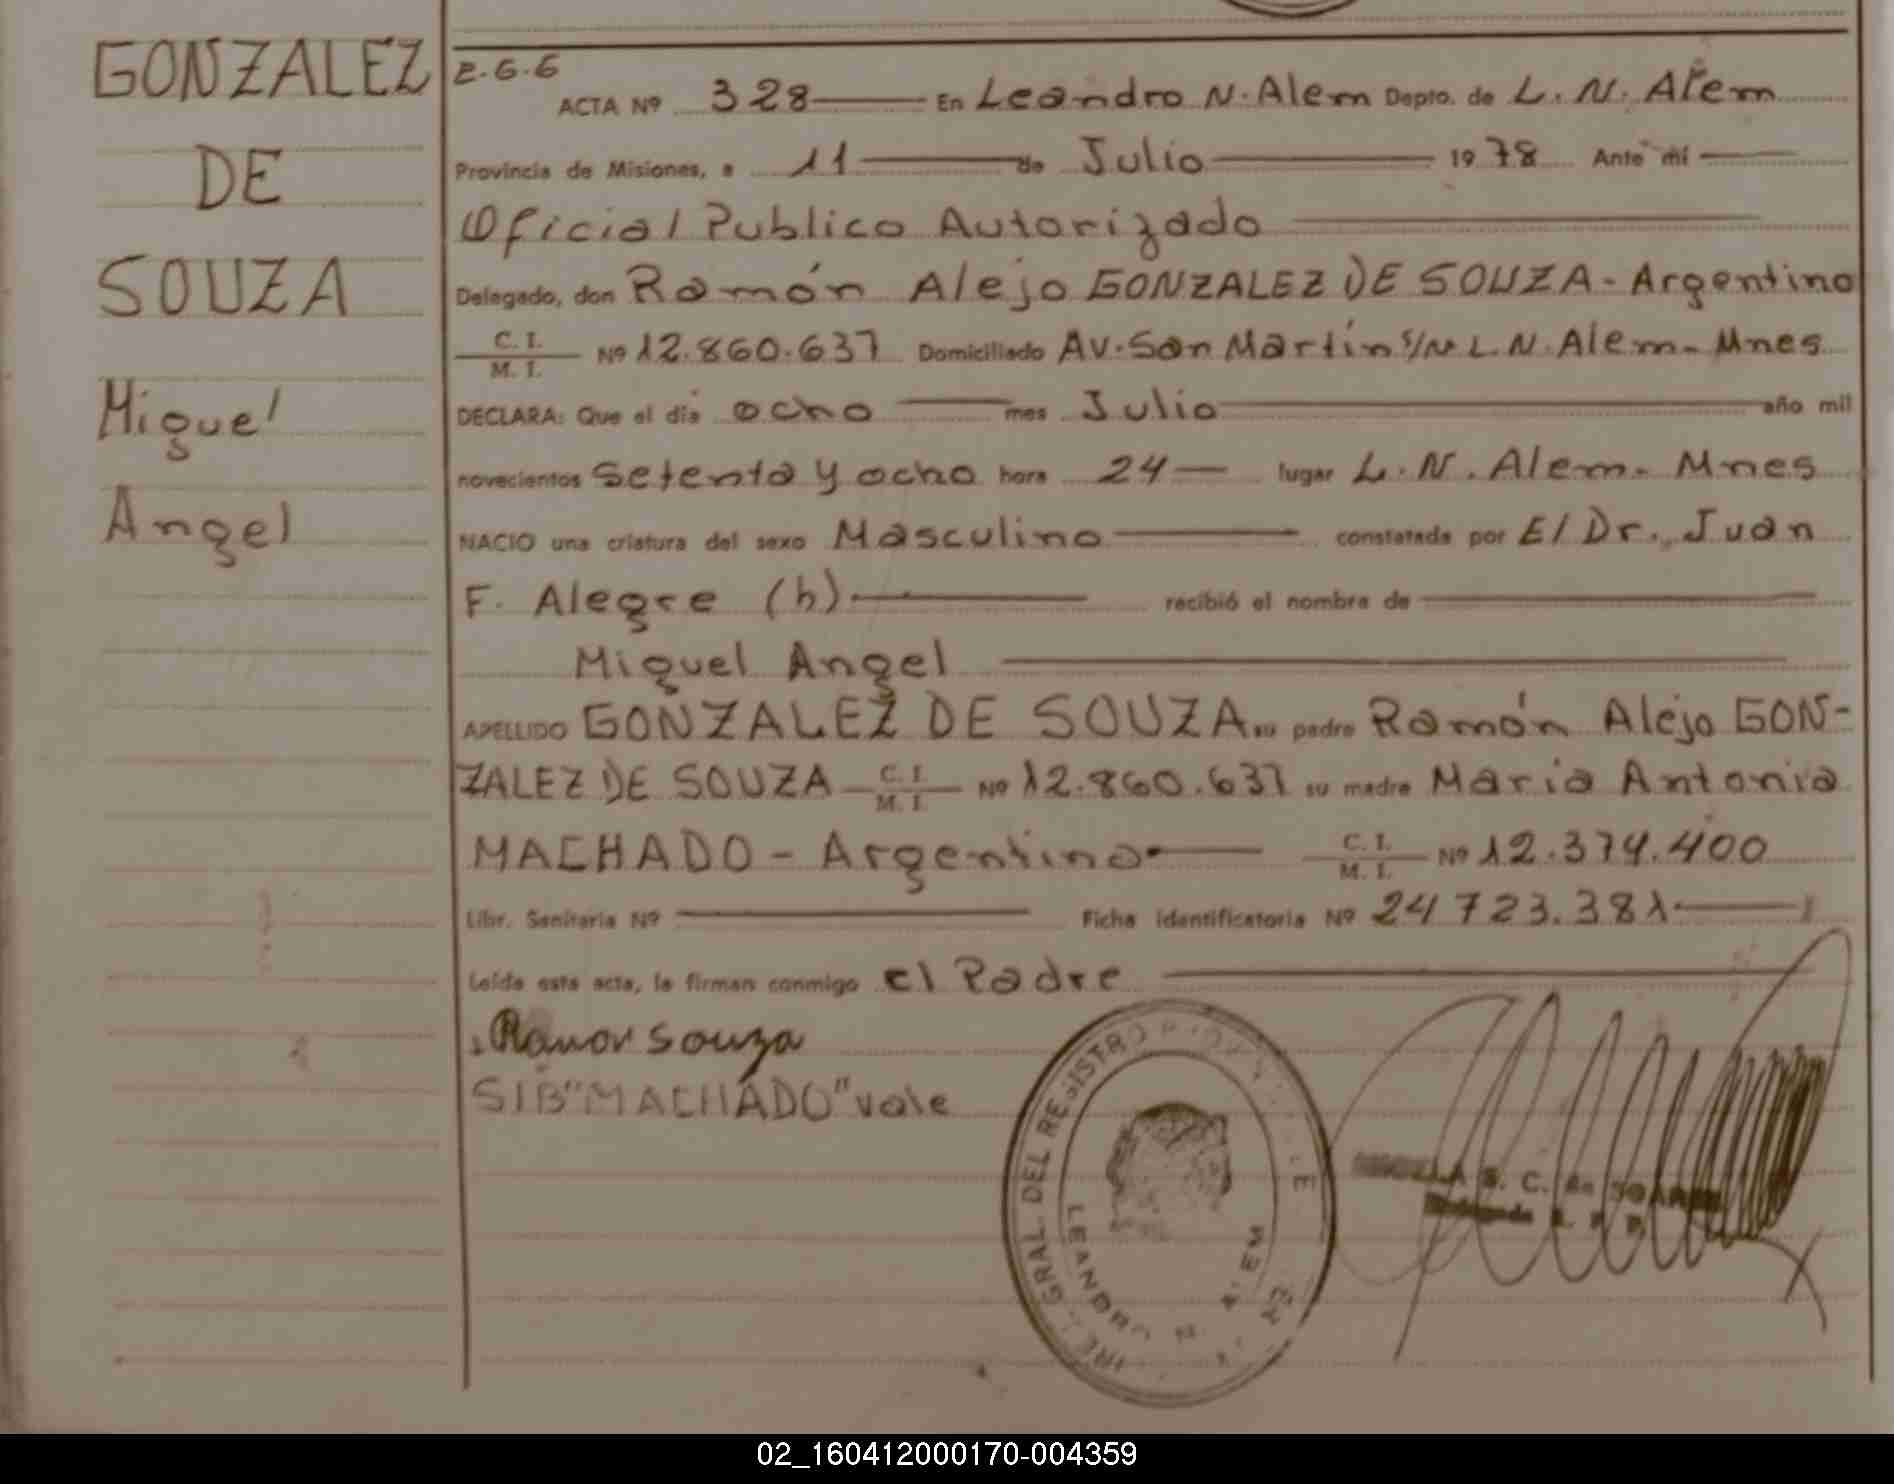 GONZALEZ
DE
SOUZA
Miguel
Angel
E.G.G
ACTA Nº 328 En Leandro N. Alem Depto. de L. N. Alem
Provincia de Misiones, a 11 de Julio 1978 Ante mí
Oficial Publico Autorizado
Delegado, don Ramón Alejo GONZALEZ DE SOUZA - Argentino
C. I.
M. I. Nº 12.860.637 Domiciliado Av. San Martín S/N L.N. Alem - Mnes
DECLARA: Que el día ocho mes Julio año mil
novecientos setenta y ocho hora 24 lugar L. N. Alem - Mnes
NACIO una criatura del sexo Masculino constatada por El Dr. Juan
F. Alegre (h) recibió el nombre de
Miguel Angel
APELLIDO GONZALEZ DE SOUZA su padre Ramón Alejo GON-
ZALEZ DE SOUZA C. I.
M. I. Nº 12.860.637 su madre Maria Antonia
MACHADO - Argentina C. I.
M. I. Nº 12.374.400
Libr. Sanitaria Nº Ficha identificatoria Nº 24 723.381
Leída esta acta, la firman conmigo el Padre
Ramon Souza
S/B "MACHADO" vale
GRAL. DEL REGISTRO
LEANDRO N. ALEM
S. C. de
02_160412000170-004359